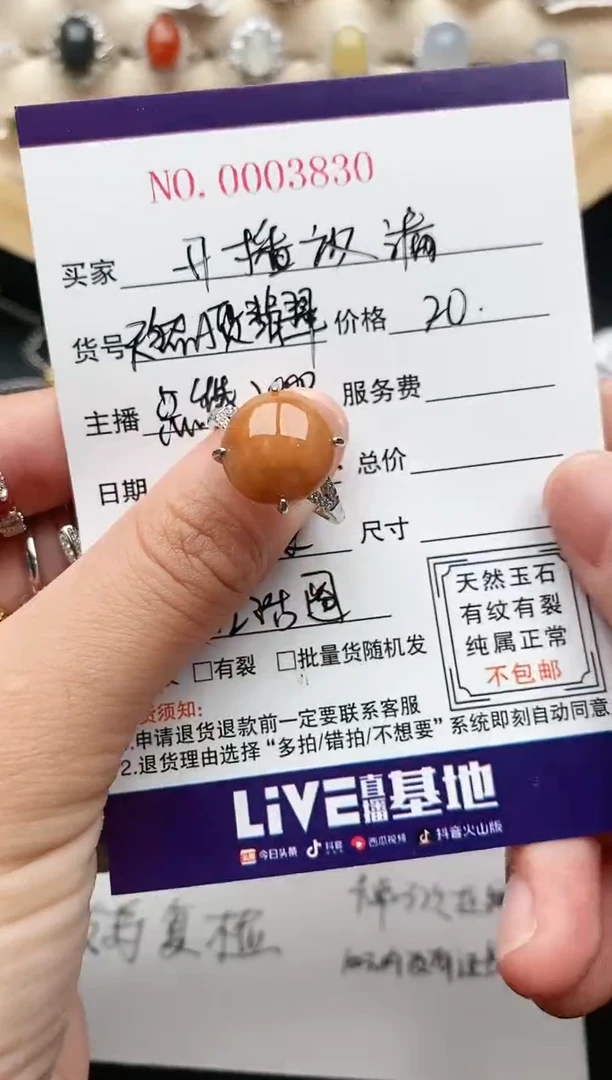 NO. 0003830
买家 开播放漏
货号 天然A货翡翠 价格 20.
主播 服务费
日期 总价
尺寸
天然玉石
有纹有裂
纯属正常
不包邮
□有裂 □批量货随机发
货须知:
1.申请退货退款前一定要联系客服
2.退货理由选择“多拍/错拍/不想要”系统即刻自动同意
LiVE直播基地
今日头条 抖音 西瓜视频 抖音火山版